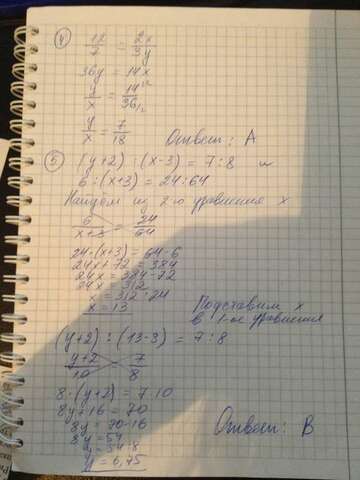 4) 12/7 = 2x/3y
36y = 14x
y/x = 14/36
y/x = 7/18
Ответ: А
5) (y+2) : (x-3) = 7:8 и
6 : (x+3) = 24:64
Найдём из 2-го уравнения x
6/x+3 = 24/64
24·(x+3) = 64·6
24x + 72 = 384
24x = 384-72
24x = 312
x = 312:24
x = 13
Подставим x
в 1-ое уравнение
(y+2) : (13-3) = 7:8
y+2/10 = 7/8
8·(y+2) = 7·10
8y+16 = 70
8y = 70-16
8y = 54
y = 54:8
y = 6,75
Ответ: В